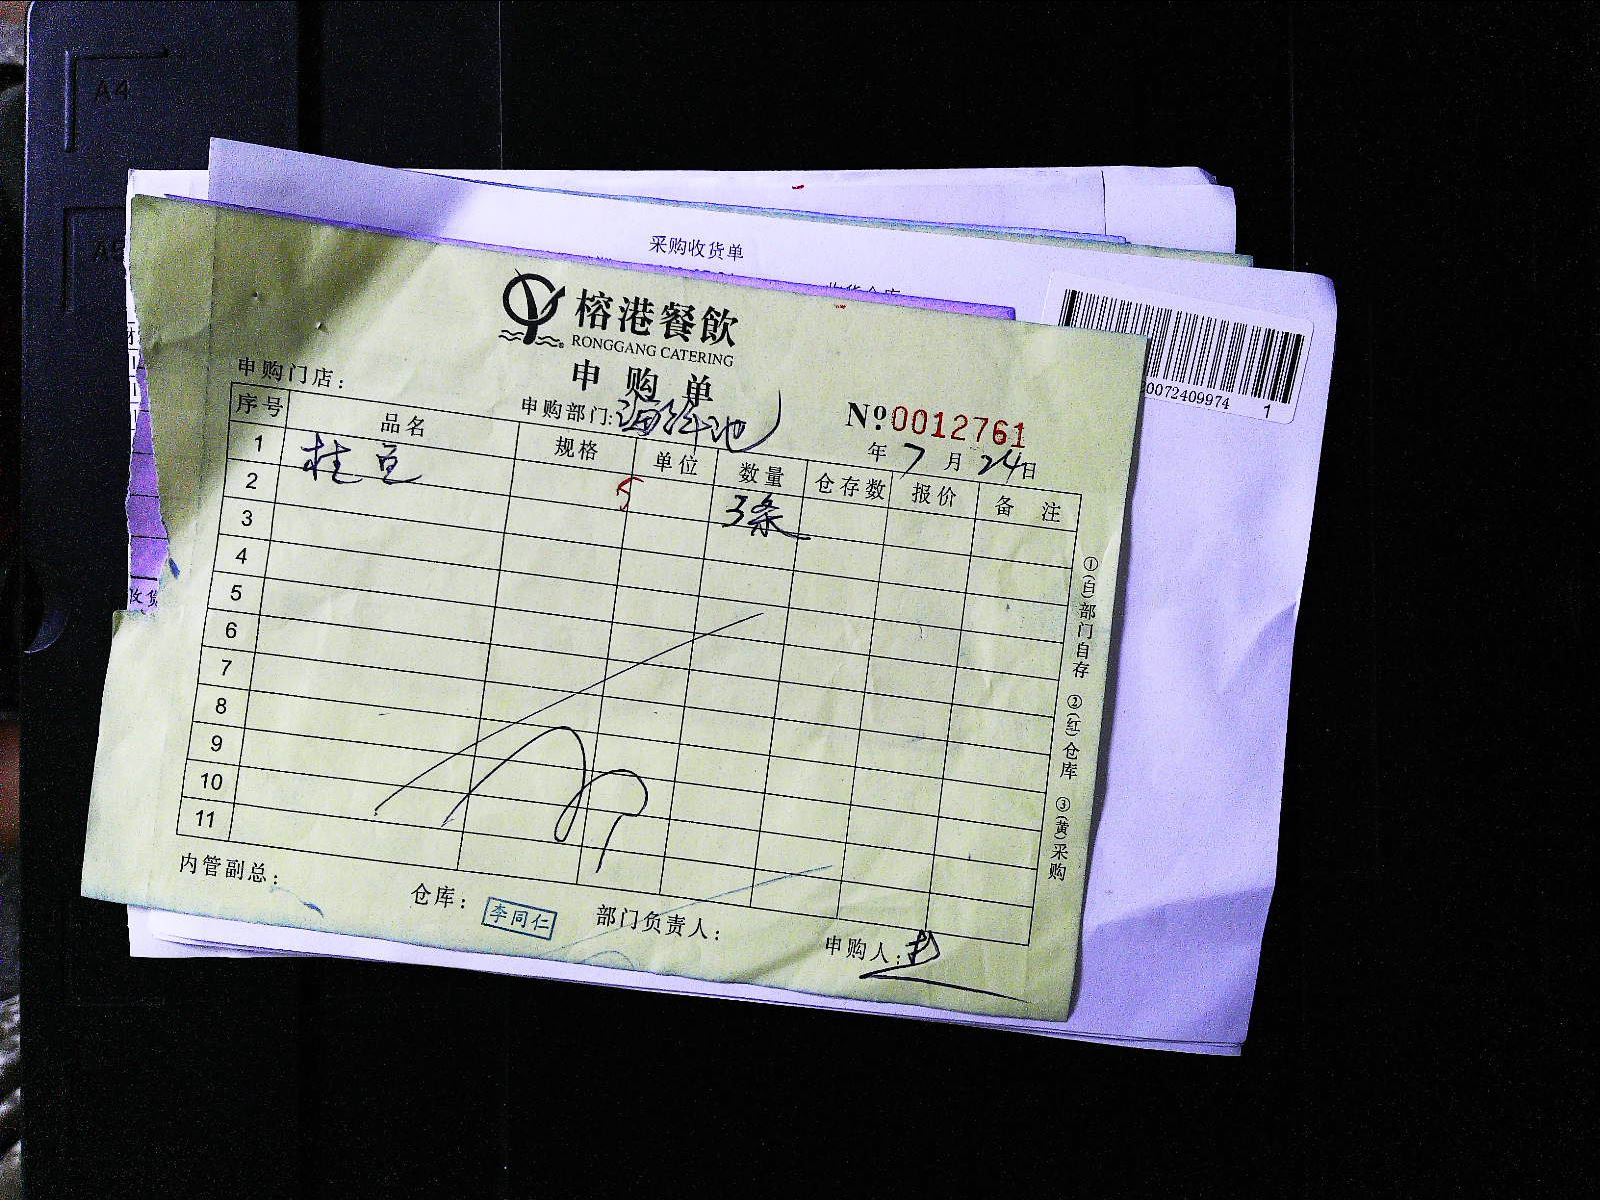 A4
A5
采购收货单
榕港餐飲
RONGGANG CATERING
申购单
0072409974 1
申购门店：
申购部门：海鲜池
№0012761
年 7 月 24 日
序号 品名 规格 单位 数量 仓存数 报价 备注
1 桂 5 3条
2
3
4
5
6
7
8
9
10
11
①(白)部门自存 ②(红)仓库 ③(黄)采购
收货
内管副总： 仓库： 李同仁 部门负责人： 申购人：